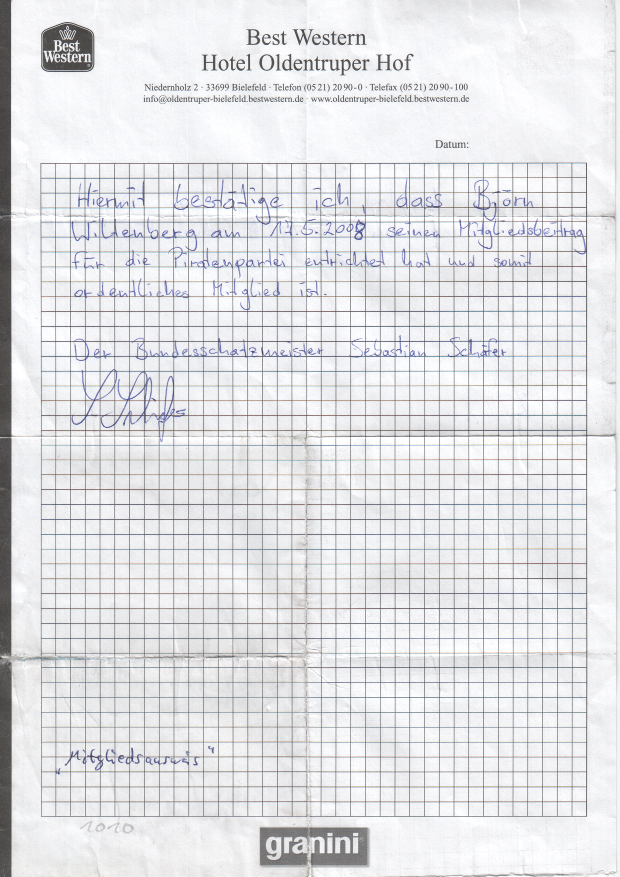 Best Western
Best Western
Hotel Oldentruper Hof
Niedernholz 2 · 33699 Bielefeld · Telefon (05 21) 20 90 - 0 · Telefax (05 21) 20 90 - 100
info@oldentruper-bielefeld.bestwestern.de · www.oldentruper-bielefeld.bestwestern.de
Datum:
Hiermit bestätige ich, dass Björn
Wildenberg am 17.5.2008 seinen Mitgliedsbeitrag
für die Piratenpartei entrichtet hat und somit
ordentliches Mitglied ist.
Der Bundesschatzmeister Sebastian Schäfer
„Mitgliedsausweis"
1010
granini